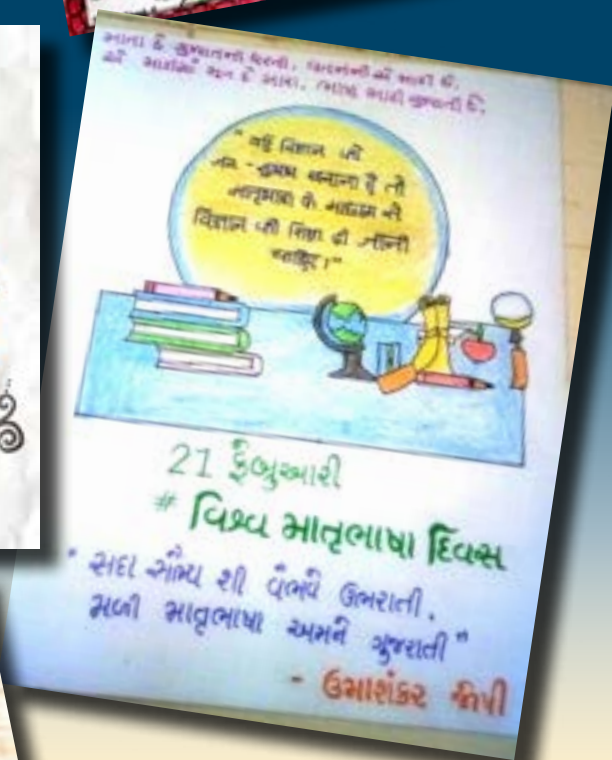 માતા છે ગુજરાતની ધરતી,
માટી છે,
" યદિ વિજ્ઞાન કો
जन - सुलभ बनाना है तो
मातृभाषा के माध्यम से
विज्ञान की शिक्षा दी जानी
चाहिए।"
21 ફેબ્રુઆરી
# વિશ્વ માતૃભાષા દિવસ
" સદા સૌમ્ય શી વૈભવે ઉભરાતી,
મળી માતૃભાષા અમને ગુજરાતી "
- ઉમાશંકર જોષી